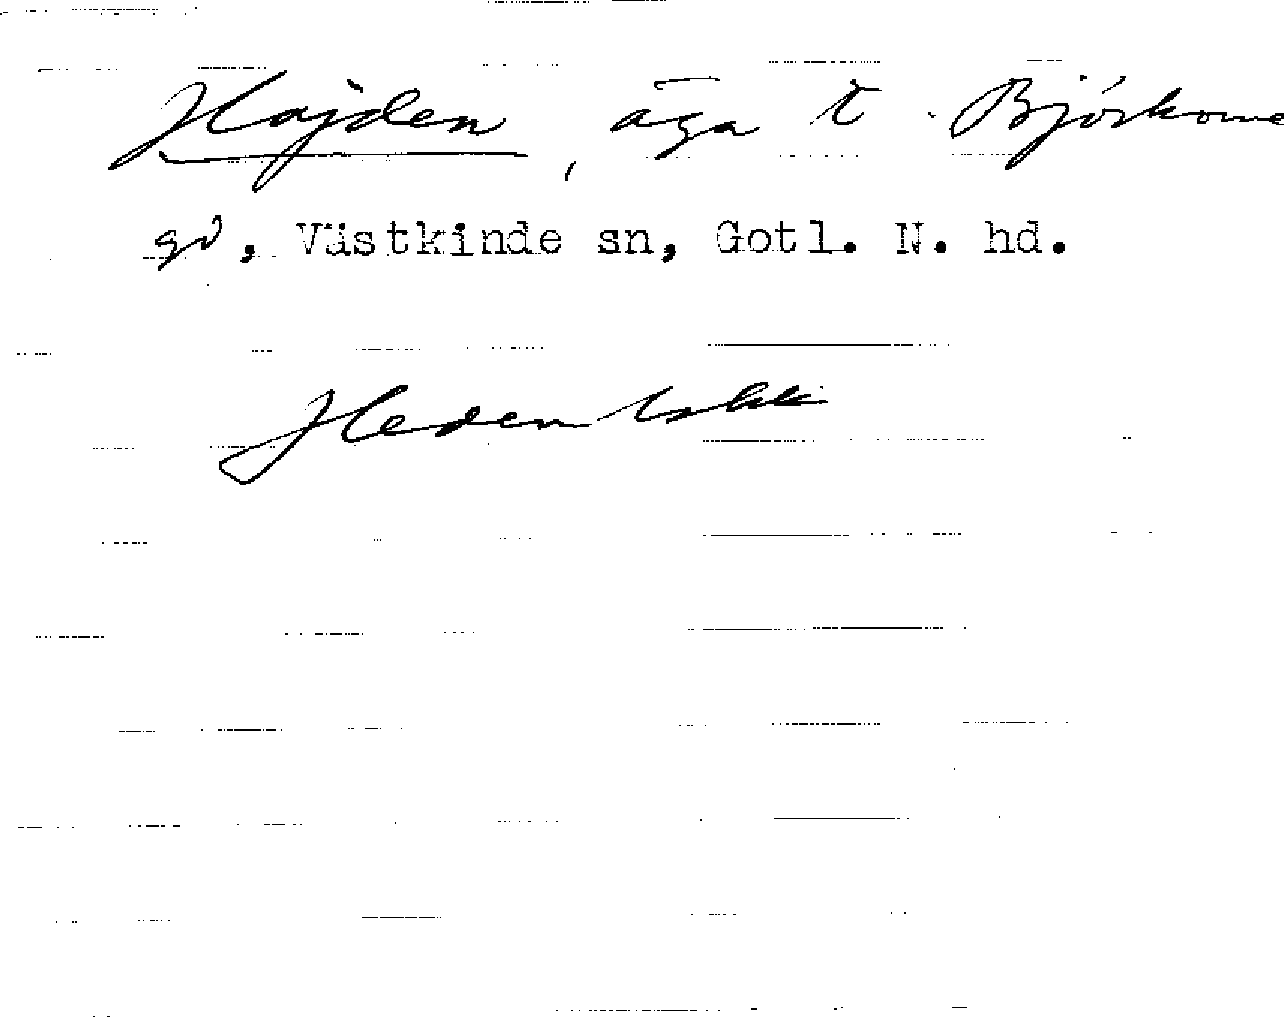 Hajden, äga t. Björkome
gd, Västkinde sn, Gotl. N. hd.
Heden